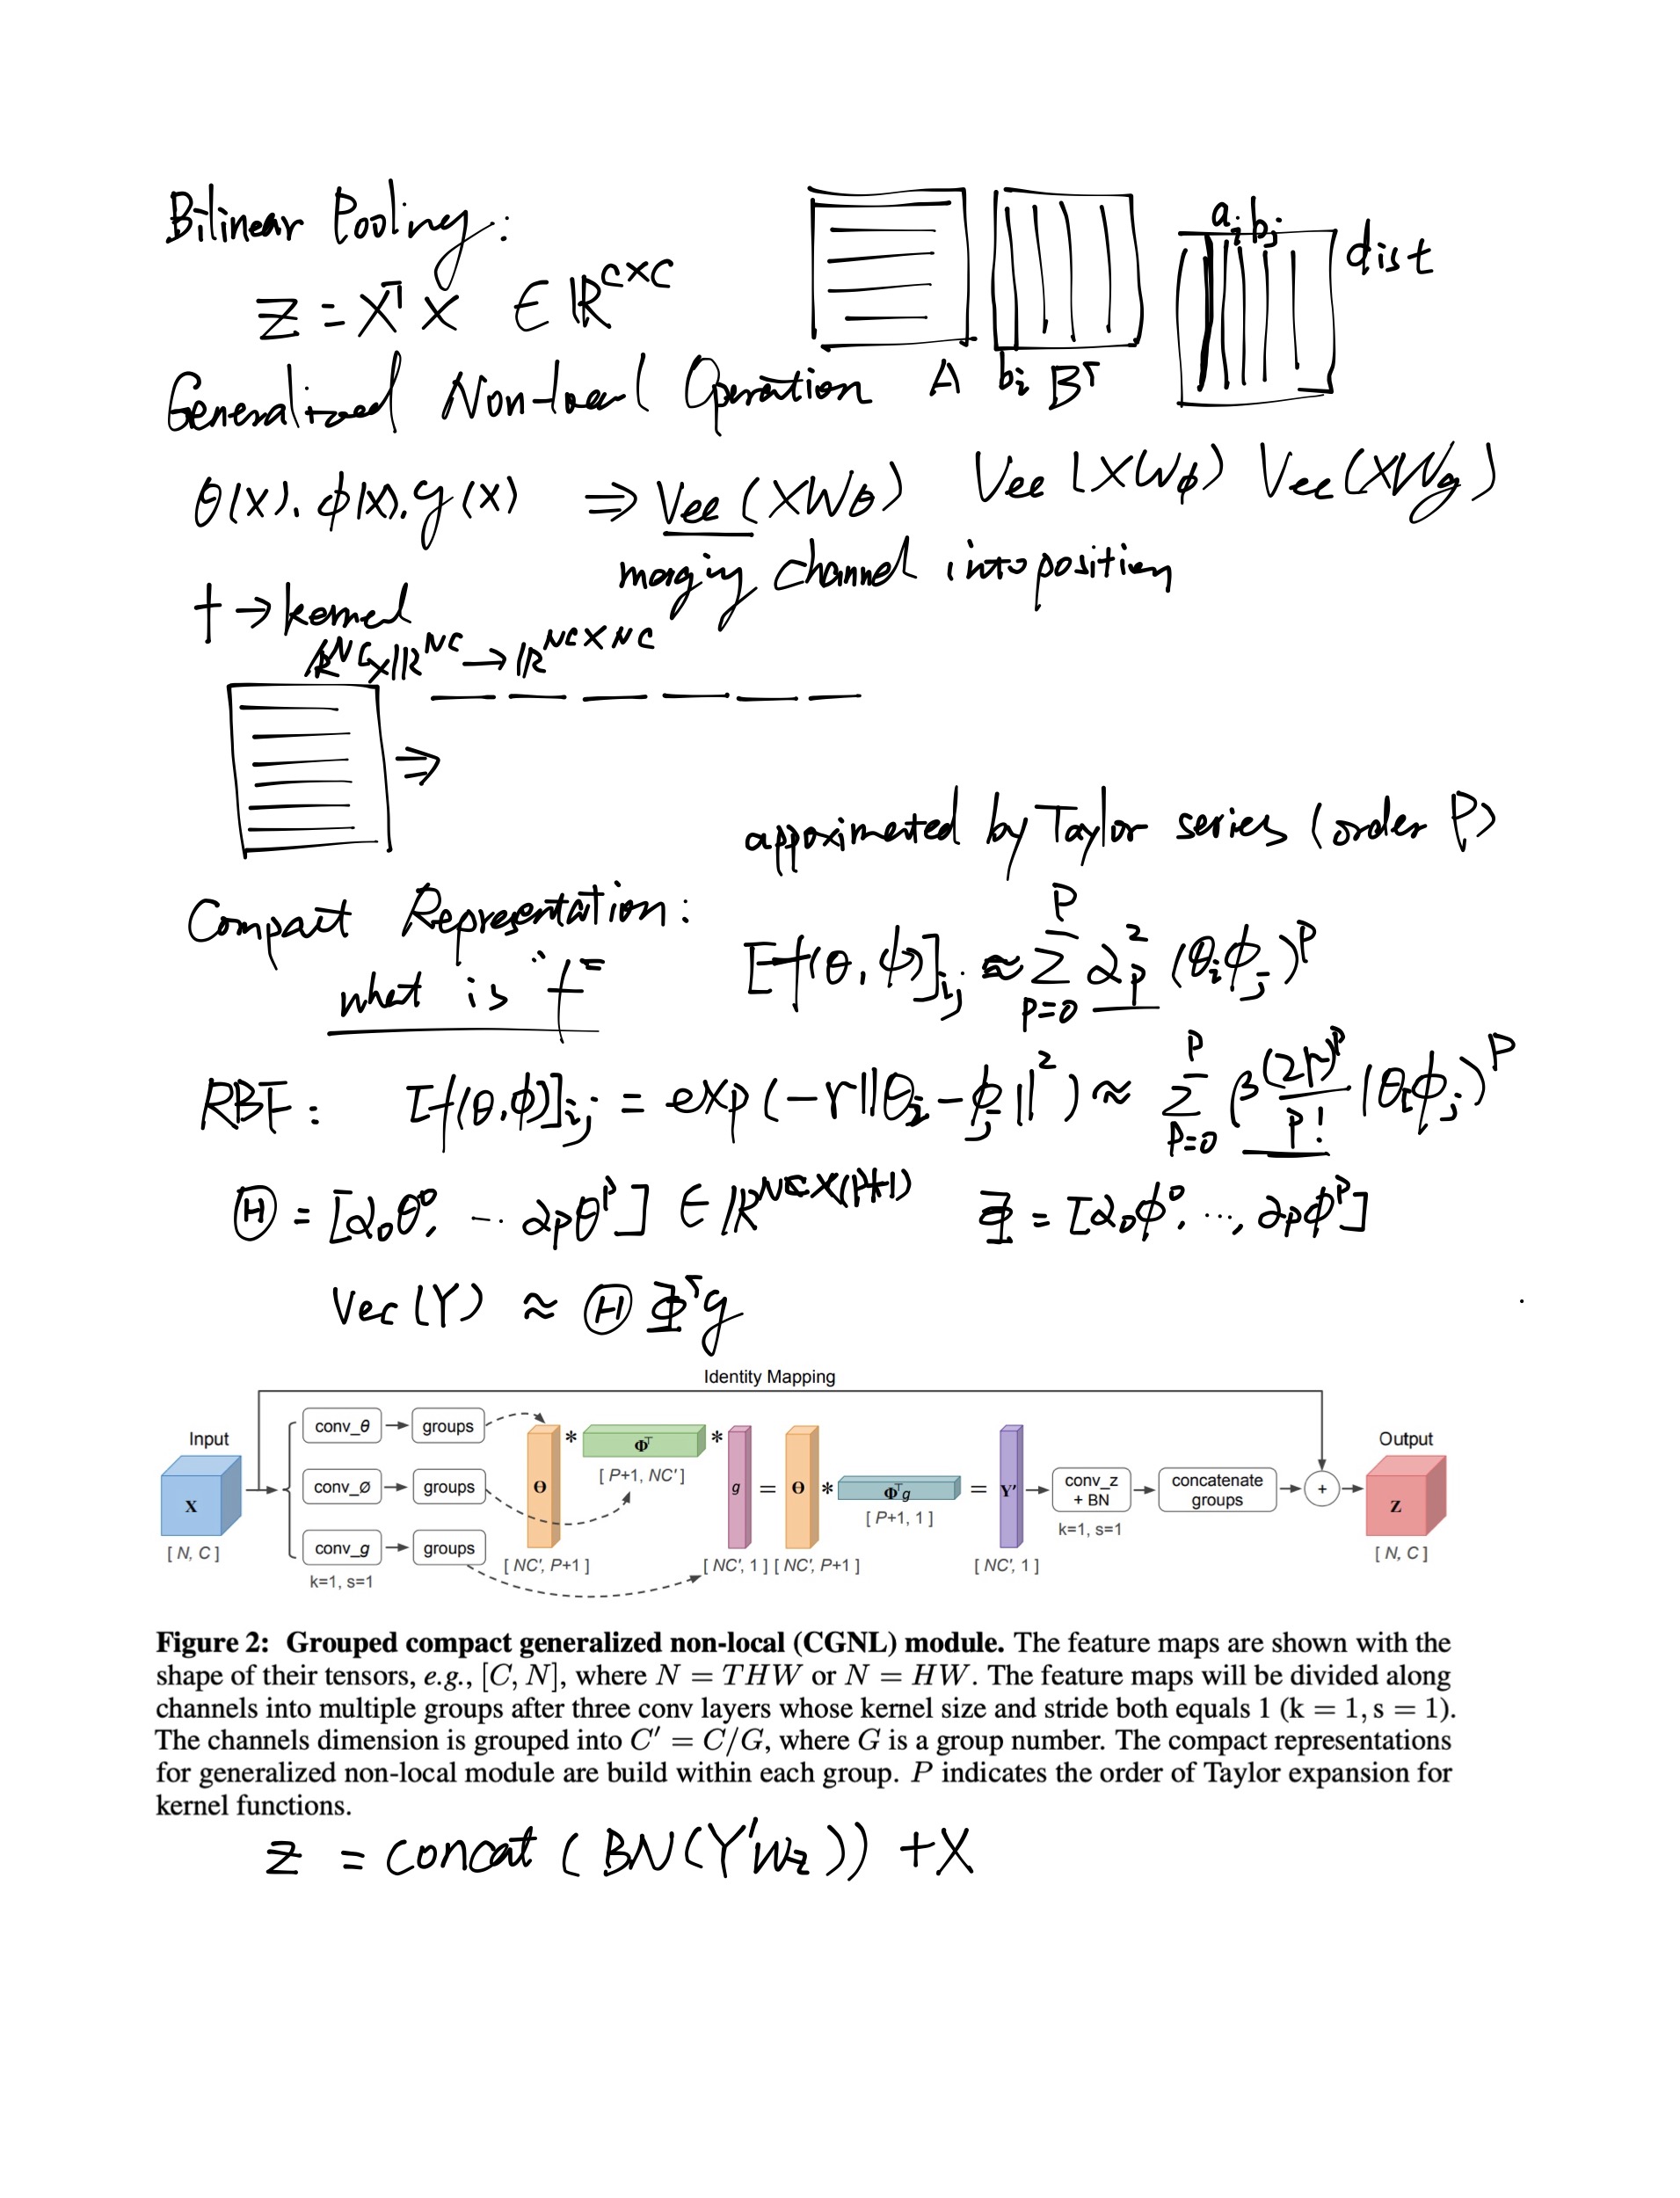 Bilinear Pooling:
Z = XᵀX ∈ ℝ^{C×C}
A bᵢ Bᵀ aᵢbⱼ dist
Generalized Non-local Operation
θ(x). φ(x). g(x) ⇒ Vec (XWθ) Vec (XWφ) Vec (XWg)
merging channel into position
f → kernel
ℝ^{NC} × ℝ^{NC} → ℝ^{NC×NC}
⇒
appoximated by Taylor series (order P)
Compact Representation:
what is "f"
[f(θ, φ)]ᵢⱼ ≈ Σ_{p=0}^{P} α_p² (θᵢφⱼ)^p
RBF: [f(θ.φ)]ᵢⱼ = exp(-r||θᵢ-φⱼ||²) ≈ Σ_{p=0}^{P} β (2r)^p / p! (θᵢφⱼ)^p
Θ = [α₀θ⁰, ... α_pθ^p] ∈ ℝ^{NC×(P+1)} Φ = [α₀φ⁰, ..., α_pφ^p]
Vec(Y) ≈ Θ Φᵀg
Identity Mapping
Input
X
[ N, C ]
conv_θ groups
conv_ø groups
conv_g groups
k=1, s=1
Θ
[ NC', P+1 ]
*
Φᵀ
[ P+1, NC' ]
*
g
[ NC', 1 ]
=
Θ
[ NC', P+1 ]
*
Φᵀg
[ P+1, 1 ]
=
Y'
[ NC', 1 ]
conv_z
+ BN
k=1, s=1
concatenate
groups
+
Output
Z
[ N, C ]
Figure 2: Grouped compact generalized non-local (CGNL) module. The feature maps are shown with the
shape of their tensors, e.g., [C, N], where N = THW or N = HW. The feature maps will be divided along
channels into multiple groups after three conv layers whose kernel size and stride both equals 1 (k = 1, s = 1).
The channels dimension is grouped into C′ = C/G, where G is a group number. The compact representations
for generalized non-local module are build within each group. P indicates the order of Taylor expansion for
kernel functions.
Z = concat (BN(Y'Wz)) + X